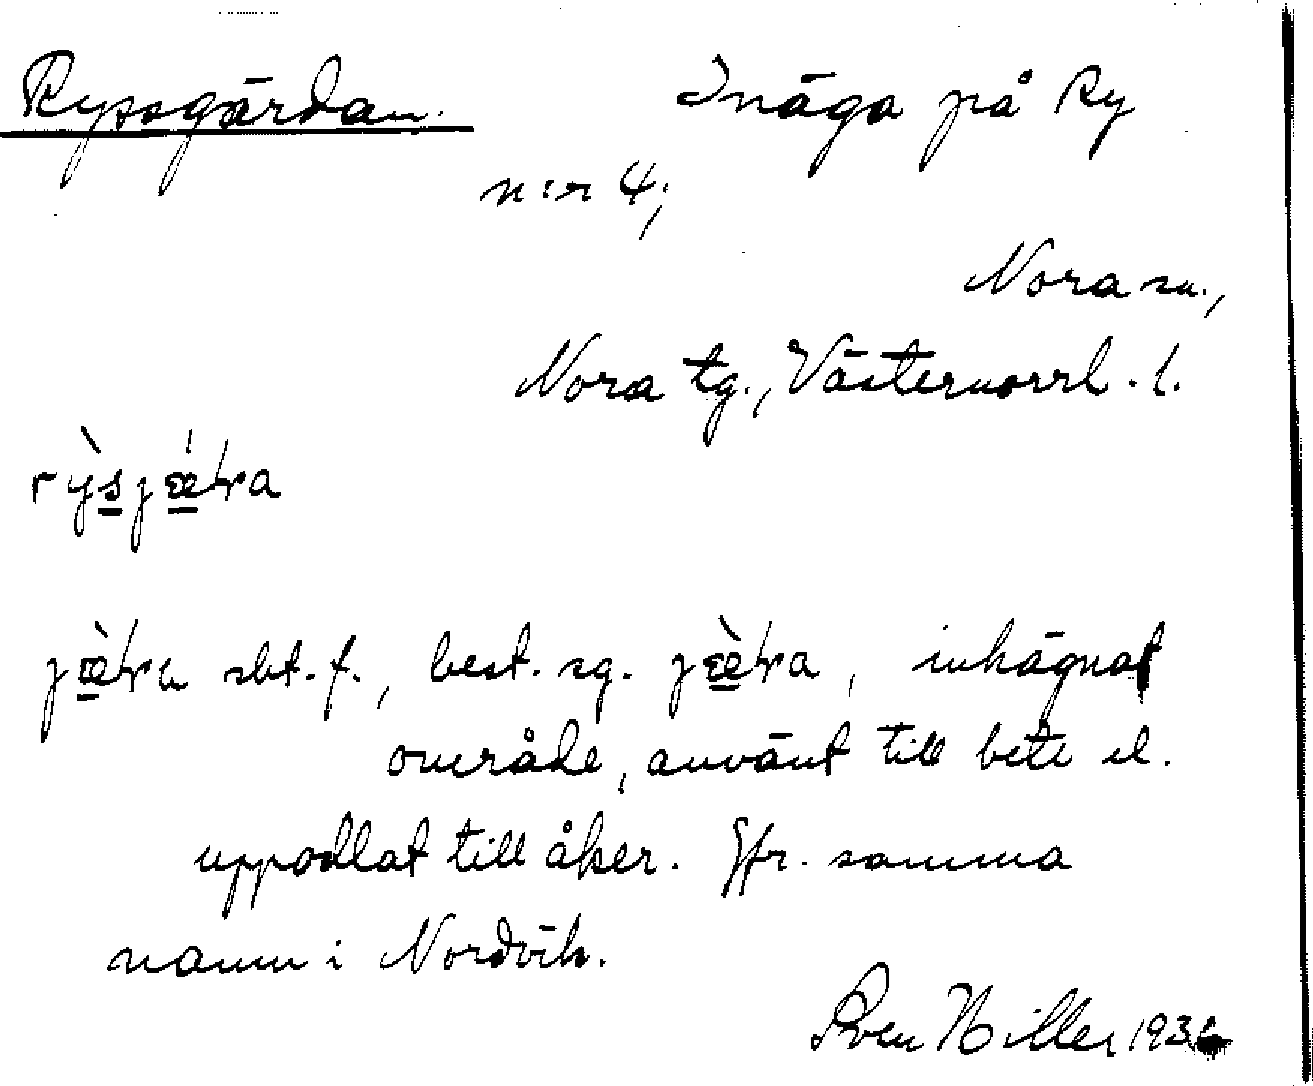 Ryssgärdan. Inäga på Ry
n:r 4;
Nora sn.,
Nora tg., Västernorrl. l.
sbt. f., best. sg. , inhägnat
område, använt till bete el.
uppodlat till åker. Jfr. samma
namn i Nordvik.
Sven Hiller